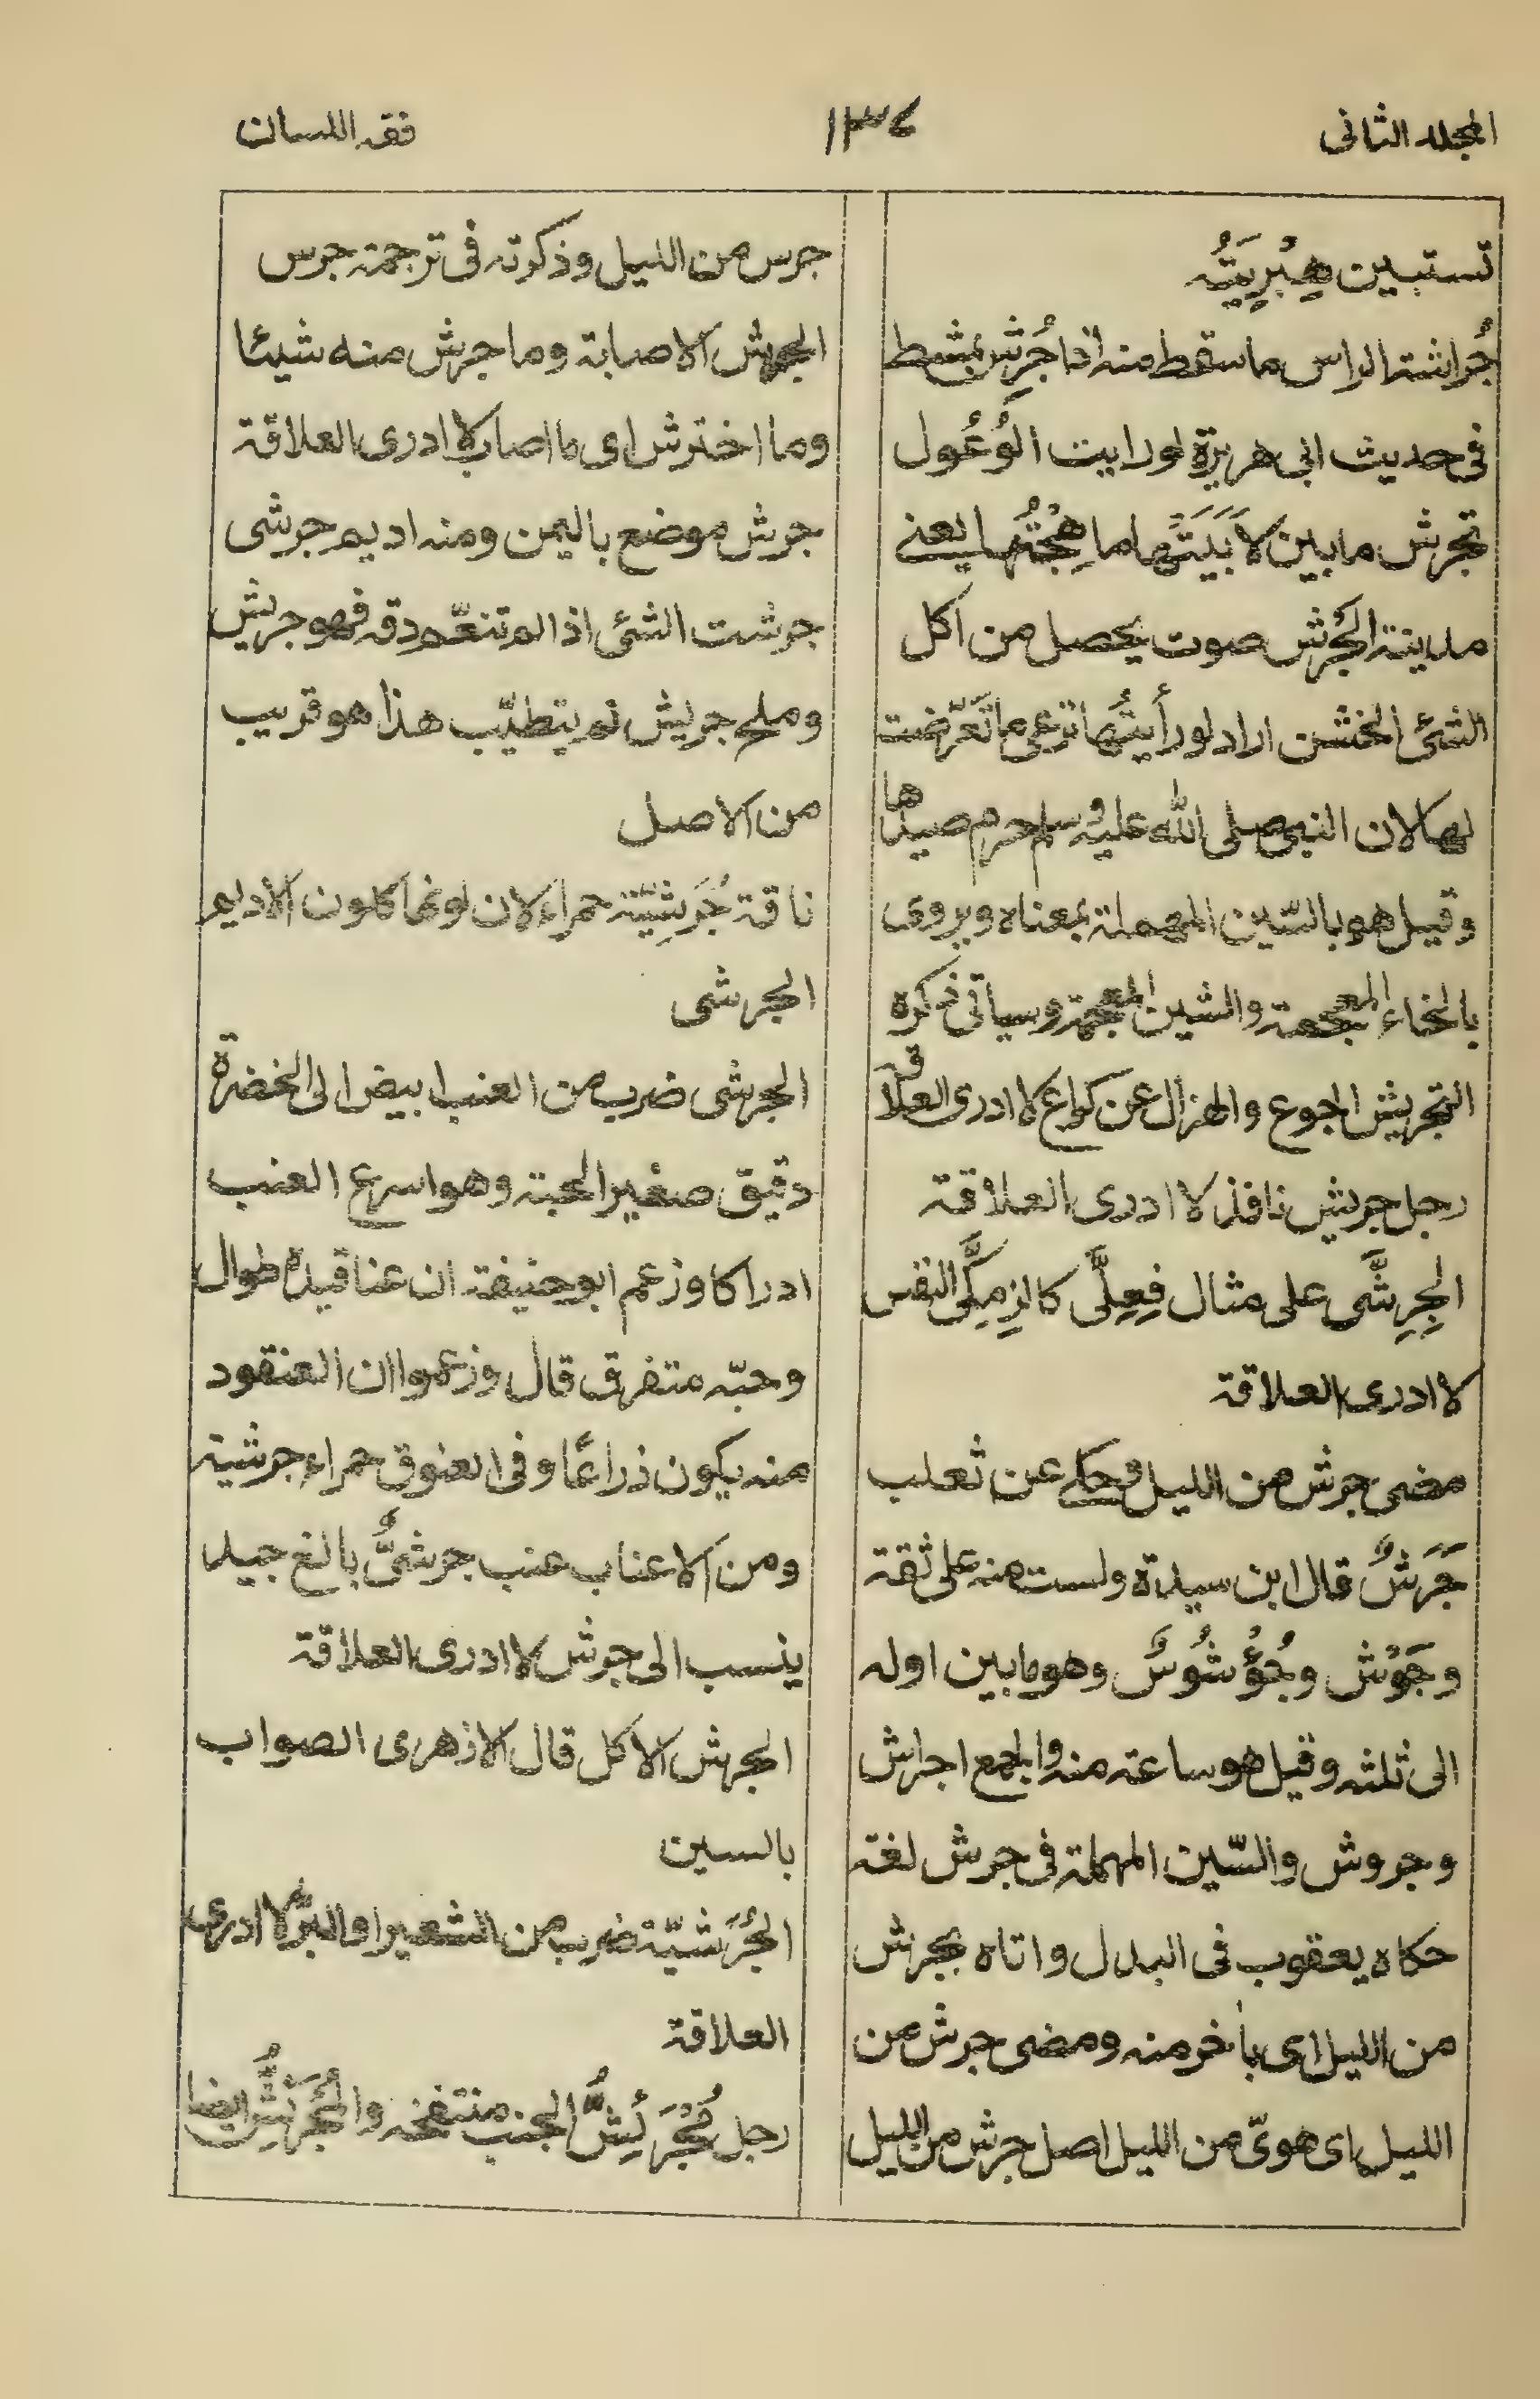 المجلد الثانى
١٣٤
فقه اللسان
تستبين هِبْرِيَتُه
جُراشة الراس ما سقط منه اذا جُرِش بمشط
فى حديث ابى هريرة لو رايت الوُعُول
تجرش ما بين لَابَيَتَها ما هِجْتُها يعنى
مدينة الجُرْش صوت يحصل من اكل
الشئ الخشن اراد لو رأيتُها ترعى ما تَعرّضت
لها لان النبى صلى الله عليه وسلم حرم صيدها
وقيل هو بالسّين المهملة بمعناه ويروى
بالخاء المعجمة والشين المعجمة وسياتى ذكره
التجريش الجوع والهزال عن كراع لا ادرى العلاقة
رجل جريش نافذ لا ادرى العلاقة
الجِرِشَّى على مثال فِعِلَّى كالزِمِكَّى النفس
لا ادرى العلاقة
مضى جرش من الليل وحكى عن ثعلب
جَرَشٌ قال ابن سيدة ولست منه على ثقة
وجَوْش وجُؤْشُوْشٌ وهو ما بين اوله
الى ثلثه وقيل هو ساعة منه والجمع اجراش
وجروش والسّين المهملة فى جرش لغة
حكاه يعقوب فى البدل واتاه بجرش
من الليل اى بأخر منه ومضى جرش من
الليل اى هوىّ من الليل اصل جرش من الليل
جرس من الليل وذكرته فى ترجمة جرس
الجرش الاصابة وما جرش منه شيئا
وما اخترش اى ما اصاب لا ادرى العلاقة
جرش موضع باليمن ومنه اديم جرشى
جرشت الشئ اذا لم تنعّم دقه فهو جريش
وملح جريش لم يتطيّب هذا هو قريب
من الاصل
ناقة جُرَشِيّة حمراء لان لونها كلون الاديم
الجرشى
الجرشى ضرب من العنب ابيض الى الخضرة
دقيق صغير الحبة وهو اسرع العنب
ادراكا وزعم ابو حنيفة ان عناقيده طوال
وحبّه متفرق قال وزعموا ان العنقود
منه يكون ذراعًا وفى العنوق حمراء جرشية
ومن الاعناب عنب جرشىٌّ بالغ جيد
ينسب الى جرش لا ادرى العلاقة
الجرش الاكل قال الازهرى الصواب
بالسين
الجُرَشيّة ضرب من الشعير او البُرّ لا ادرى
العلاقة
رجل مُجْرَئِشُّ الجنب منتفخه والمُجْرَئِشُّ ايضا